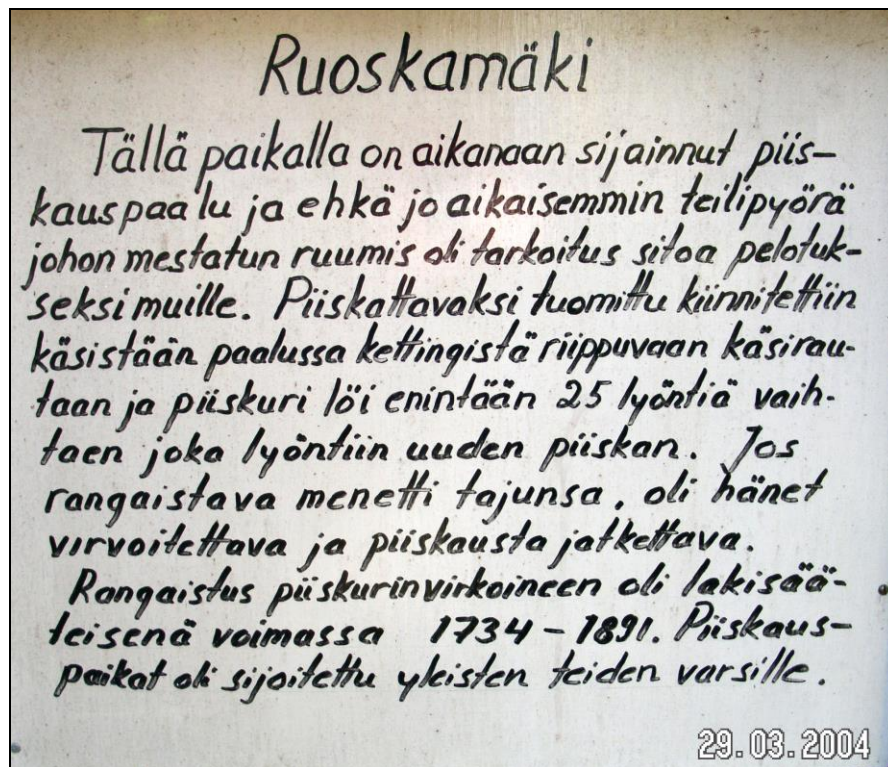 Ruoskamäki
Tällä paikalla on aikanaan sijainnut piis-
kauspaalu ja ehkä jo aikaisemmin teilipyörä
johon mestatun ruumis oli tarkoitus sitoa pelotuk-
seksi muille. Piiskattavaksi tuomittu kiinnitettiin
käsistään paalussa kettingistä riippuvaan käsirau-
taan ja piiskuri löi enintään 25 lyöntiä vaih-
taen joka lyöntiin uuden piiskan. Jos
rangaistava menetti tajunsa, oli hänet
virvoitettava ja piiskausta jatkettava.
Rangaistus piiskurinvirkoineen oli lakisää-
teisenä voimassa 1734-1891. Piiskaus-
paikat oli sijoitettu yleisten teiden varsille.
29.03.2004